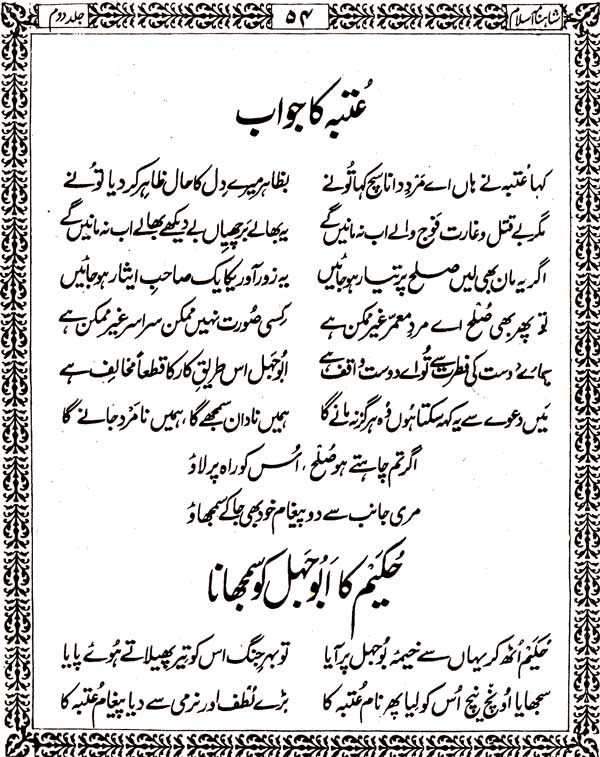 شاہنامہ اسلام ۵۴ جلد دوم
عُتبہ کا جواب
کہا عُتبہ نے ہاں اے مَردِ دانا سچ کہا تُونے بظاہر میرے دِل کا حال ظاہر کر دیا تُو نے
مگر بے قتل و غارت فوج والے اب نہ مانیں گے یہ بھالے برچھیاں بے دیکھے بھالے اب نہ مانیں گے
اگر یہ مان بھی لیں صلح پر تیار ہو جائیں یہ زور آور یکایک صاحبِ ایثار ہو جائیں
تو پھر بھی صُلح اے مردِ معمر غیر ممکن ہے کِسی صُورت نہیں ممکن سراسر غیر ممکن ہے
ہمارے دوست کی فطرت سے تُو اے دوست واقف ہے ابُوجہل اس طریقِ کار کا قطعاً مخالِف ہے
مَیں دعوے سے یہ کہہ سکتا ہُوں وُہ ہرگز نہ مانے گا ہمیں نادان سمجھے گا، ہمیں نامَرد جانے گا
اگر تم چاہتے ہو صُلح، اُس کو راہ پر لاؤ
مری جانب سے دو پیغام خود بھی جا کے سمجھاؤ
حُکَیم کا اَبُوجہل کو سمجھانا
حُکَیم اُٹھ کر یہاں سے خیمۂ بُوجہل پر آیا تو بہرِ جنگ اس کو تیر پھیلاتے ہُوئے پایا
سمجھایا اُونچ نیچ اُس کو لِیا پھر نام عُتبہ کا بڑے لُطف اور نرمی سے دیا پیغام عُتبہ کا